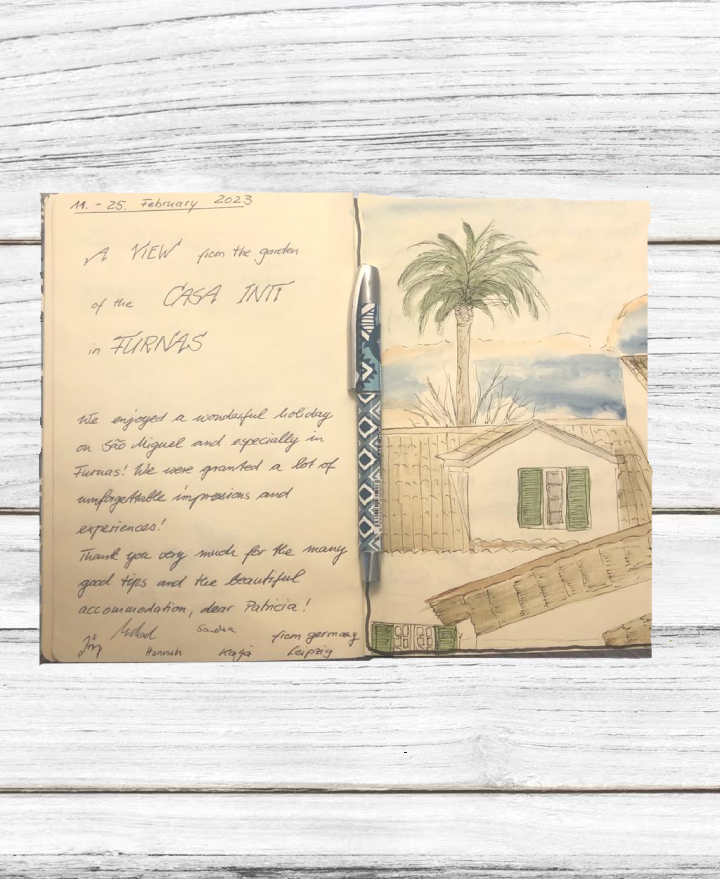 11. - 25. February 2023
A VIEW from the garden
of the CASA INTI
in FURNAS
We enjoyed a wonderful holiday
on São Miguel and especially in
Furnas! We were granted a lot of
unforgettable impressions and
experiences!
Thank you very much for the many
good tips and the beautiful
accommodation, dear Patricia!
Jörg Michael Sandra from germany
Hannah Katja Leipzig